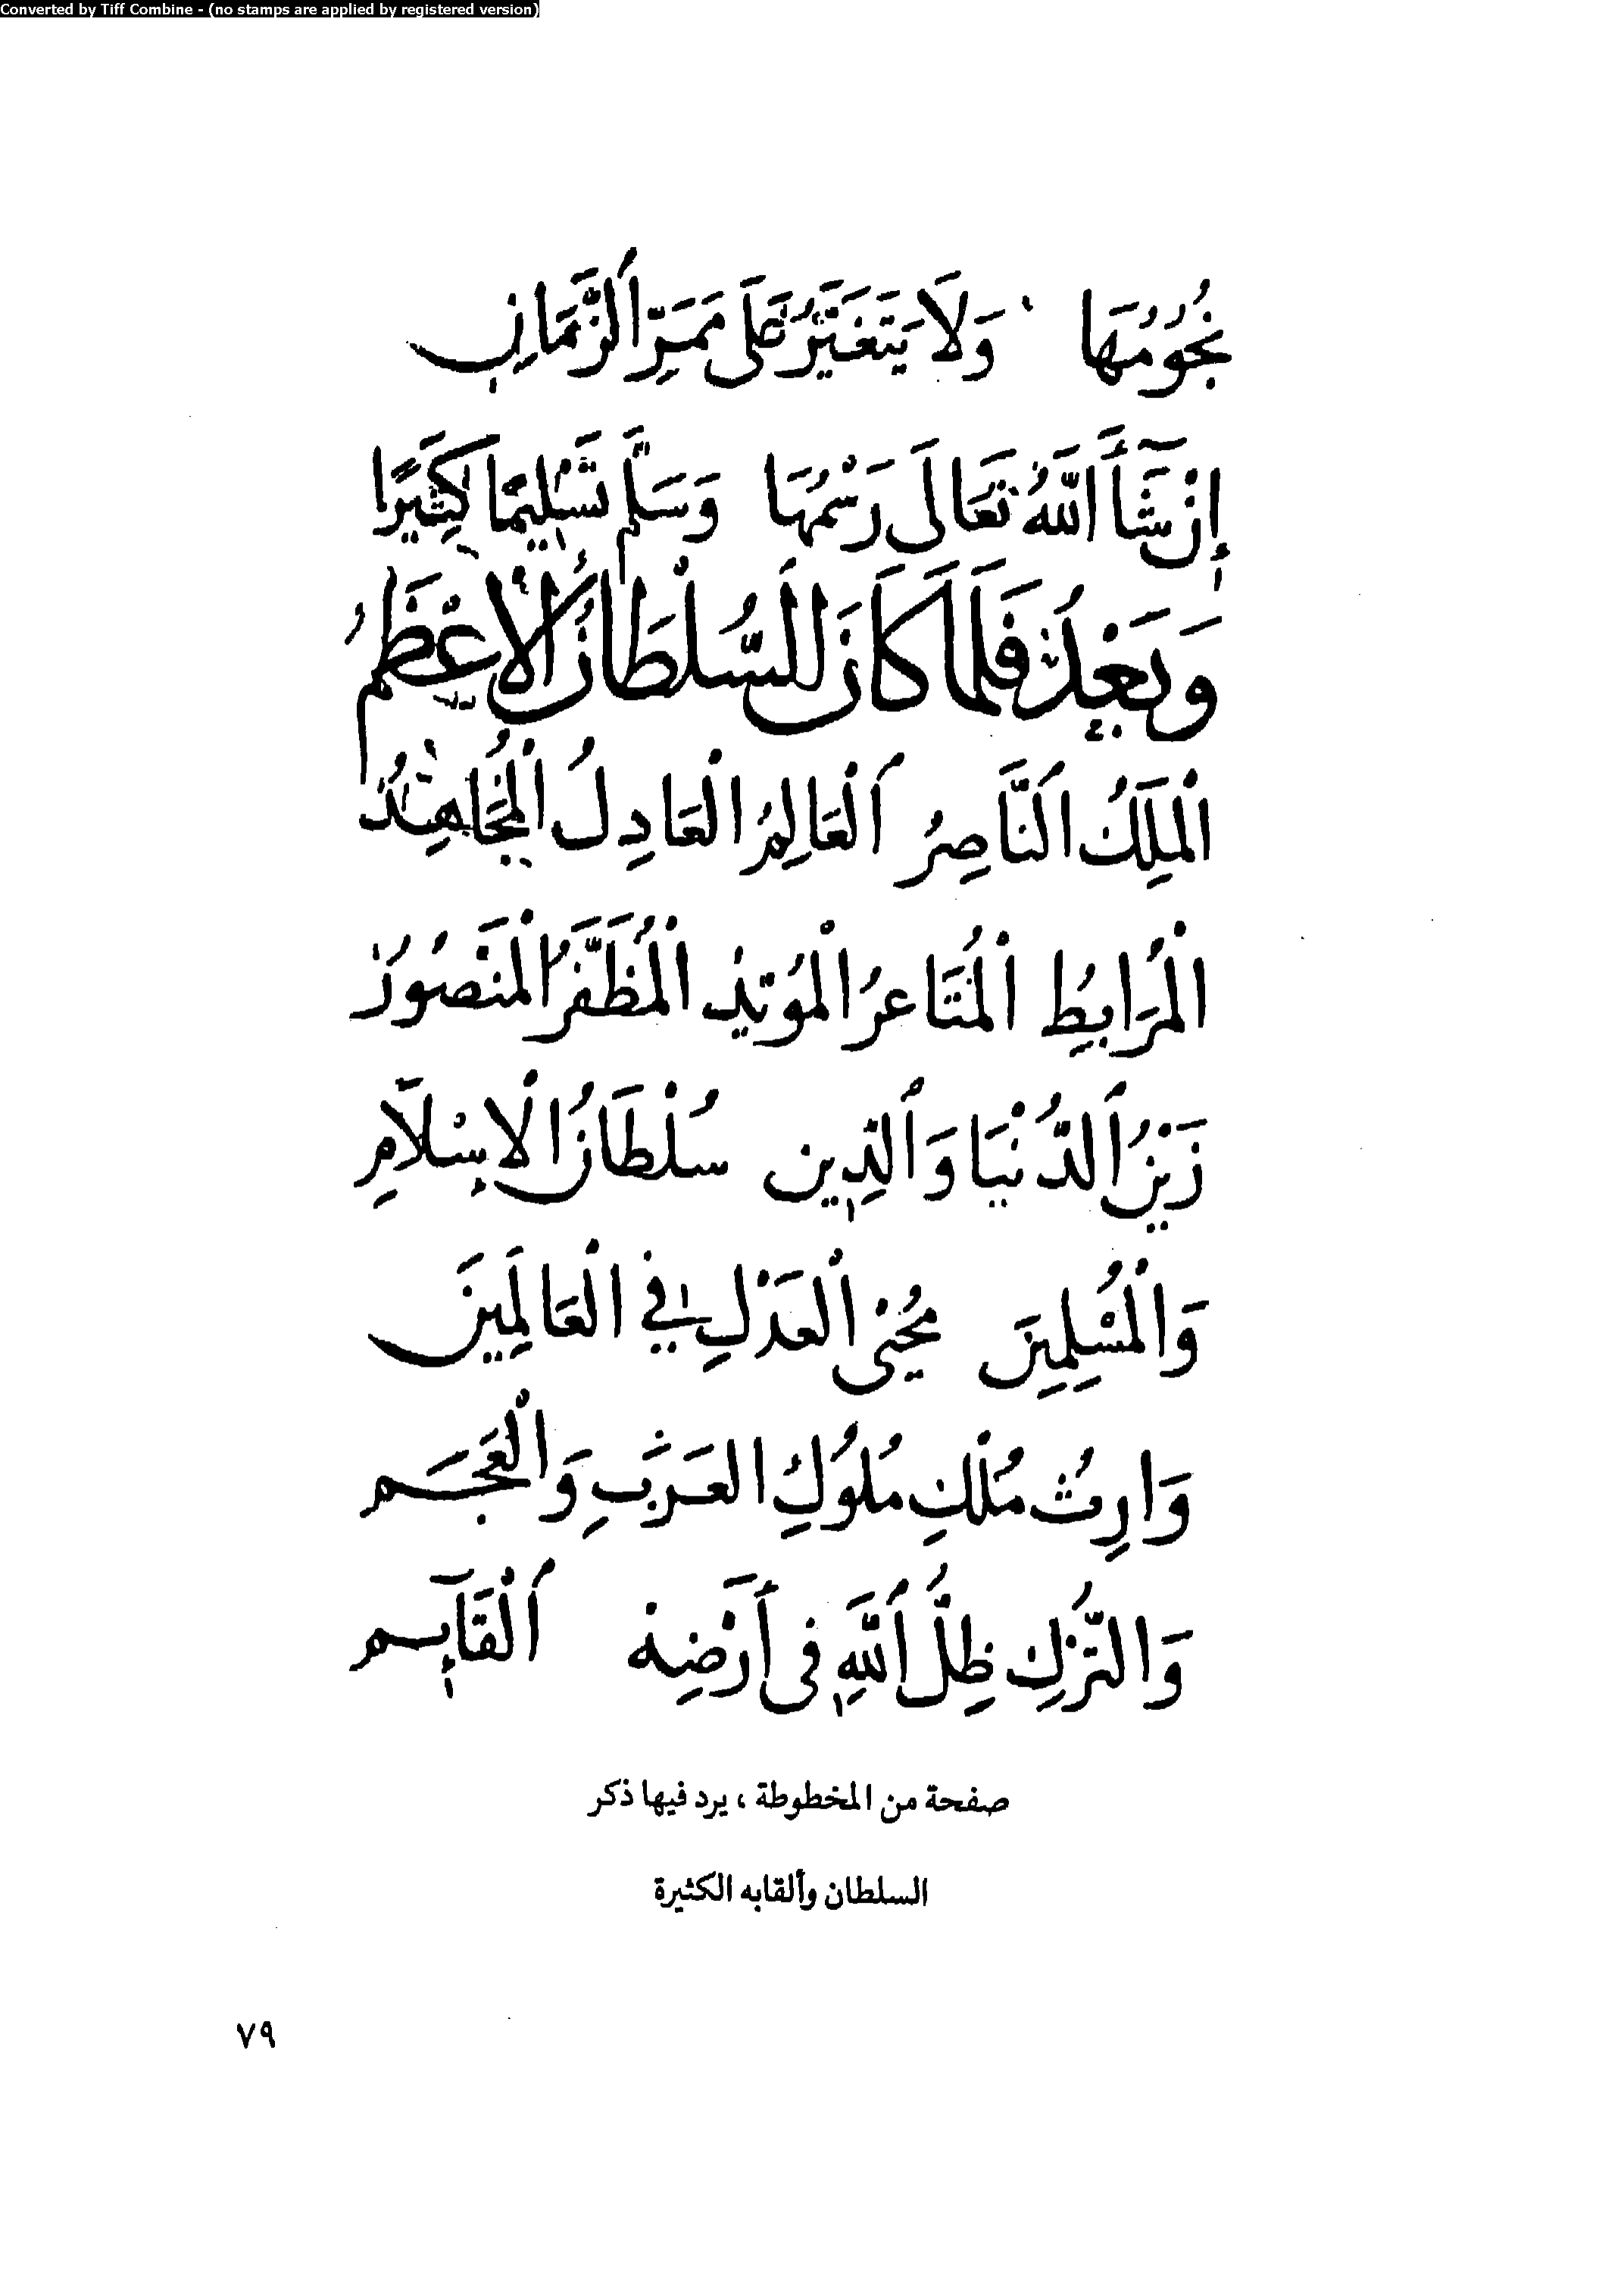 Converted by Tiff Combine - (no stamps are applied by registered version)
نُجُومُهَا وَلَا يَتَغَيَّرُ عَلَى مَمَرِّ الزَّمَانِ
إِنْ شَآءَ اللَّهُ تَعَالَى رَسْمُهَا وَسَلَّمَ تَسْلِيمًا كَثِيرًا
وَبَعْدُ فَلَمَّا كَانَ السُّلْطَانُ الْأَعْظَمُ
الْمَلِكُ النَّاصِرُ الْعَالِمُ الْعَادِلُ الْمُجَاهِدُ
الْمُرَابِطُ الْمُثَاغِرُ الْمُؤَيَّدُ الْمُظَفَّرُ الْمَنْصُورُ
زَيْنُ الدُّنْيَا وَالدِّينِ سُلْطَانُ الْإِسْلَامِ
وَالْمُسْلِمِينَ مُحْيِي الْعَدْلِ فِي الْعَالَمِينَ
وَارِثُ مُلْكِ مُلُوكِ الْعَرَبِ وَالْعَجَمِ
وَالتُّرْكِ ظِلُّ اللَّهِ فِي أَرْضِهِ الْقَآئِمِ
صفحة من المخطوطة ، يرد فيها ذكر
السلطان وألقابه الكثيرة
٧٩